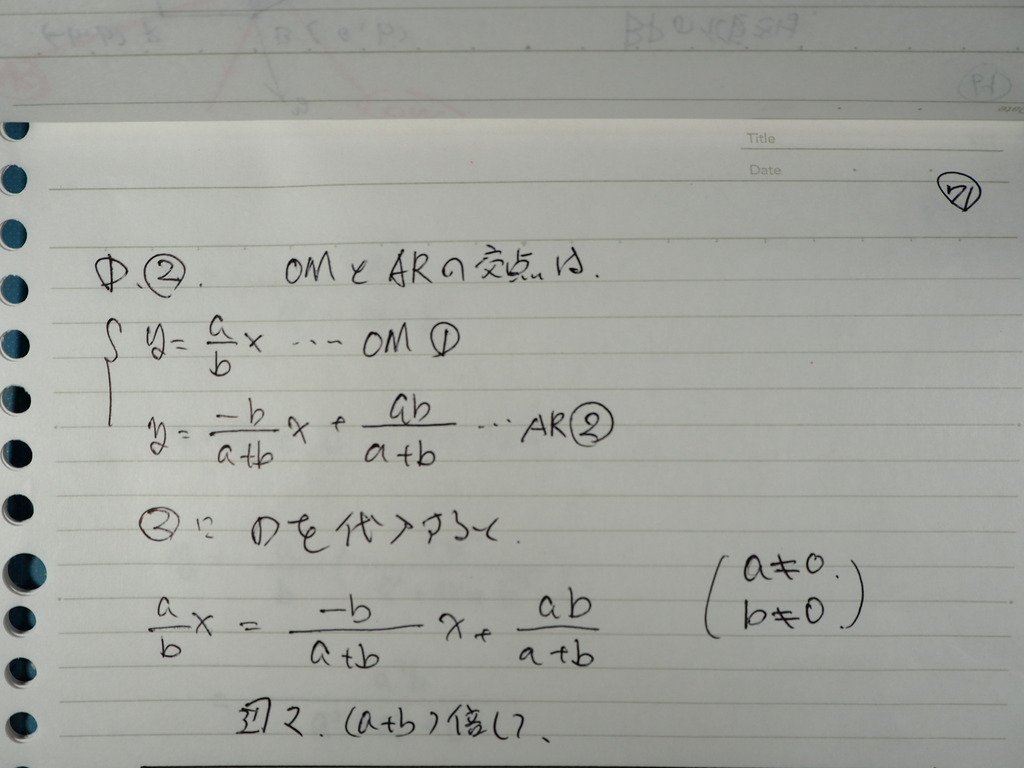 Title
Date
71
①.②. OMとARの交点は.
y = a/b x … OM ①
y = -b/(a+b) x + ab/(a+b) … AR②
②に①を代入すると.
a/b x = -b/(a+b) x + ab/(a+b) (a≠0. b≠0.)
辺々.(a+b)倍して、